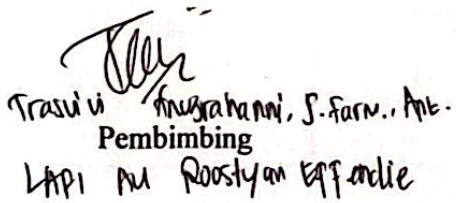 Trasvivi Anugrahanni, S.Farm., Apt.
Pembimbing
LAPI AU Roostyan Effendie